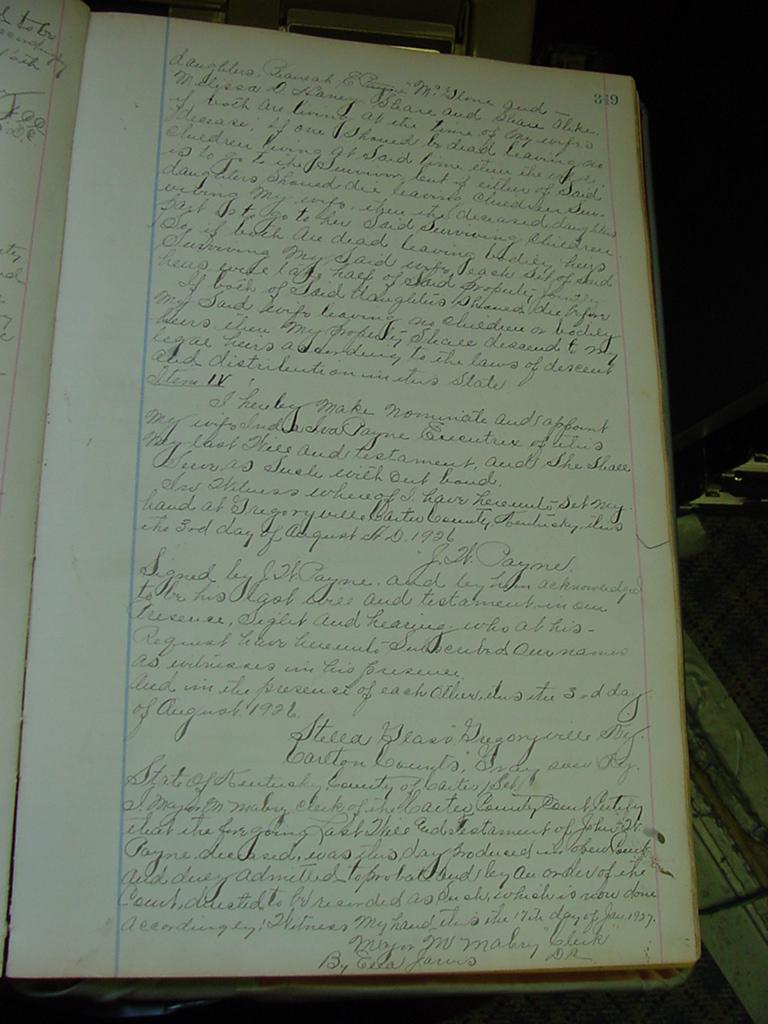 349
daughters, E Payne Mc Glone and
Melissa D. Haney Share and Share alike,
if both are living at the time of my wifes
decease, if one Should be dead leaving no
Children living at Said time then the whole
is to go to the Survivor, but if either of Said
daughters Should die leaving Children Sur-
viving my wife, then the deceased daughters
part is to go to her Said Surviving Children.
So if both are dead leaving bodily heirs
Surviving My Said wife, each Set of Said
heirs were take half of Said property jointly
If both of Said daughters Should die before
my Said wife leaving no Children or bodily
heirs, then my property Shall descend to my
legal heirs according to the laws of descent
and distribution in this State
Item IV
I hereby make nominate and appoint
my wife Iva Payne Executrix of this
My last Will and testament, and She Shall
Serve as Such with out bond.
In Witness whereof I have hereunto Set my
hand at Gregoryville, Carter County, Kentucky, this
the 3rd day of August A.D. 1926
J. W. Payne.
Signed by J. W. Payne. and by him acknowledged
to be his last will and testament, in our
Presence, Sight and hearing who at his-
Request have hereunto Subscribed our names
as witnesses in his presence,
and in the presence of each other, this the 3rd day
of August. 1926.
Stella Glass, Gregoryville Ky.
Carlton Counts, Grayson Ky.
State Of Kentucky County of Carter (Sct)
I M Mabry Clerk of the Carter County Court, Certify
that the foregoing Last Will and testament of John W.
Payne deceased, was this day Produced in open Court
and duly admitted to probate and by an order of the
Court, directed to be recorded as Such, which is now done
accordingly: Witness My hand this the 17th day of Jan. 1927.
M Mabry Clerk
By Ella Jarvis D.C.